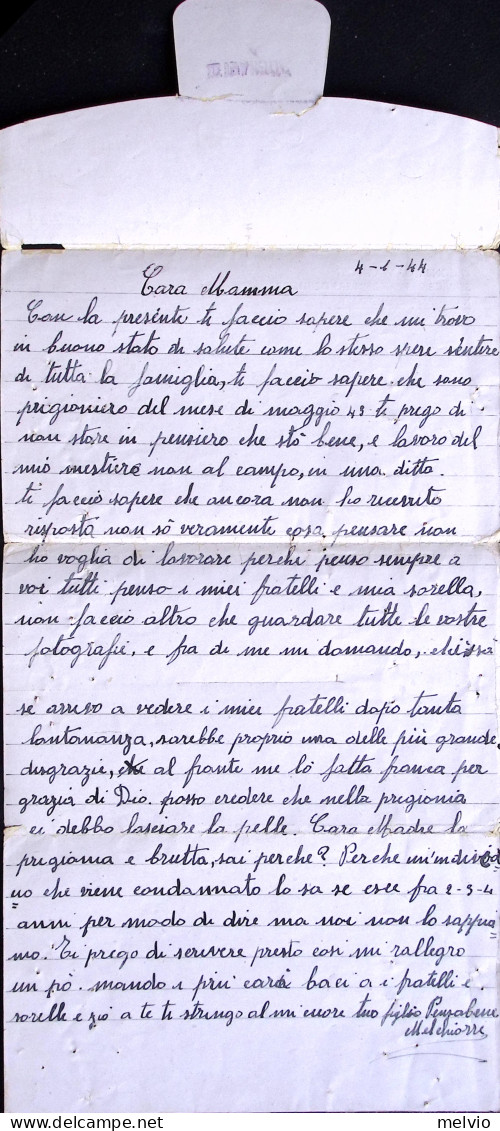 4-1-44
Cara Mamma
Con la presente ti faccio sapere che mi trovo
in buono stato di salute come lo stesso spere sentire
di tutta la famiglia, ti faccio sapere che sono
prigioniero del mese di maggio 43 ti prego di
non stare in pensiero che stò bene, e lavoro del
mio mestiere non al campo, in una ditta.
ti faccio sapere che ancora non ho ricevuto
risposta non sò veramente cosa pensare non
ho voglia di lavorare perchi penso sempre a
voi tutti penso i miei fratelli e mia sorella,
non faccio altro che guardare tutte le vostre
fotografie, e fra di me mi domando, chissà
se arrivo a vedere i miei fratelli dopo tanta
lontananza, sarebbe proprio una delle più grande
disgrazie, al fronte me lò fatta franca per
grazia di Dio. posso credere che nella prigionia
ci debbo lasciare la pelle. Cara Madre la
prigionia e brutta, sai perche? Perche un'individ
uo che viene condannato lo sa se esce fra 2-3-4
anni per modo di dire ma noi non lo sappia=
mo. Ti prego di scrivere presto cosi mi rallegro
un pò. mando i più cari baci a i fratelli e
sorelle e zio a te ti stringo al mi cuore tuo figlio Penzabene
Melchiorre
melvio
delcampe.net